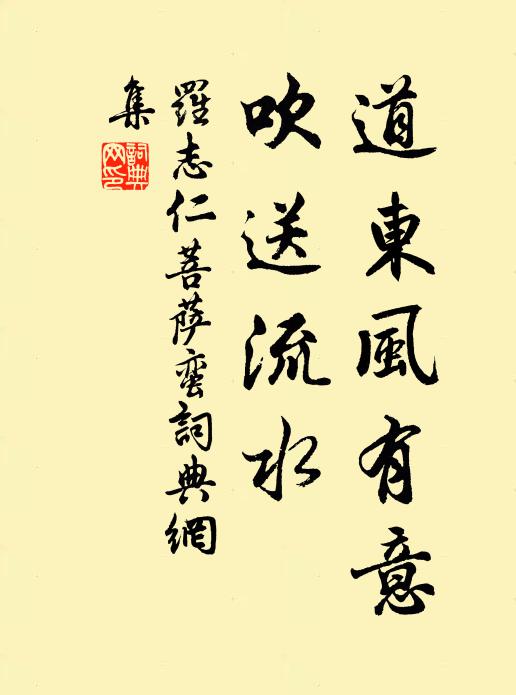 道東風有意
吹送流水
羅志仁菩薩蠻詞典網
集
詞典網印